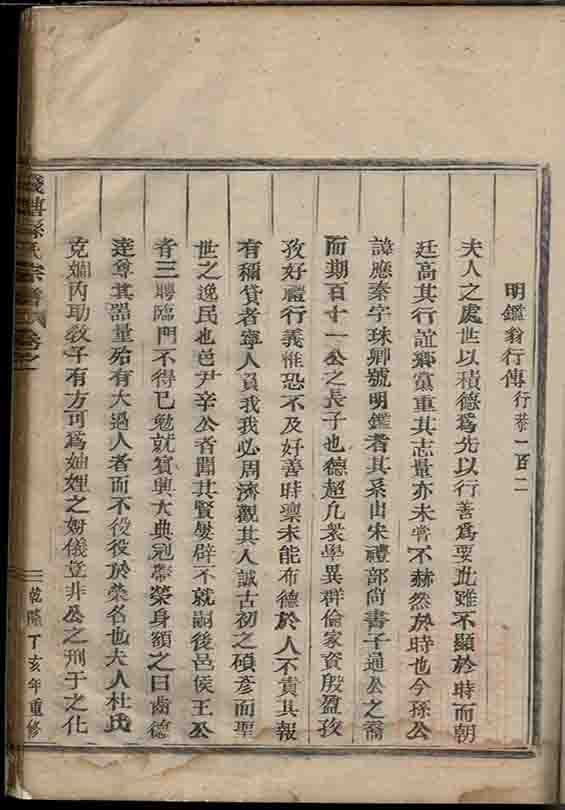 明鑑翁行傳行恭一百二
夫人之處世以積德爲先以行善爲要此雖不顯於時而朝
廷高其行誼鄉黨重其志量亦未嘗不赫然於時也今孫公
諱應秦字珠卿號明鑑者其系由宋禮部尚書子通公之裔
而期百十一公之長子也德超凡衆學異群倫家資殷盈孜
孜好禮行義惟恐不及好善時凜未能布德於人不責其報
有稱貸者寧人負我我必周濟觀其人誠古初之碩彥而聖
世之逸民也邑尹辛公者聞其賢屢辟不就嗣後邑侯王公
者三聘臨門不得已勉就賓興大典冠帶榮身額之曰齒德
達尊其器量殆有大過人者而不役役於榮名也夫人杜氏
克嫻內助教子有方可爲妯娌之姆儀豈非公之刑于之化
孫氏宗譜 卷之
乾隆丁亥年重修